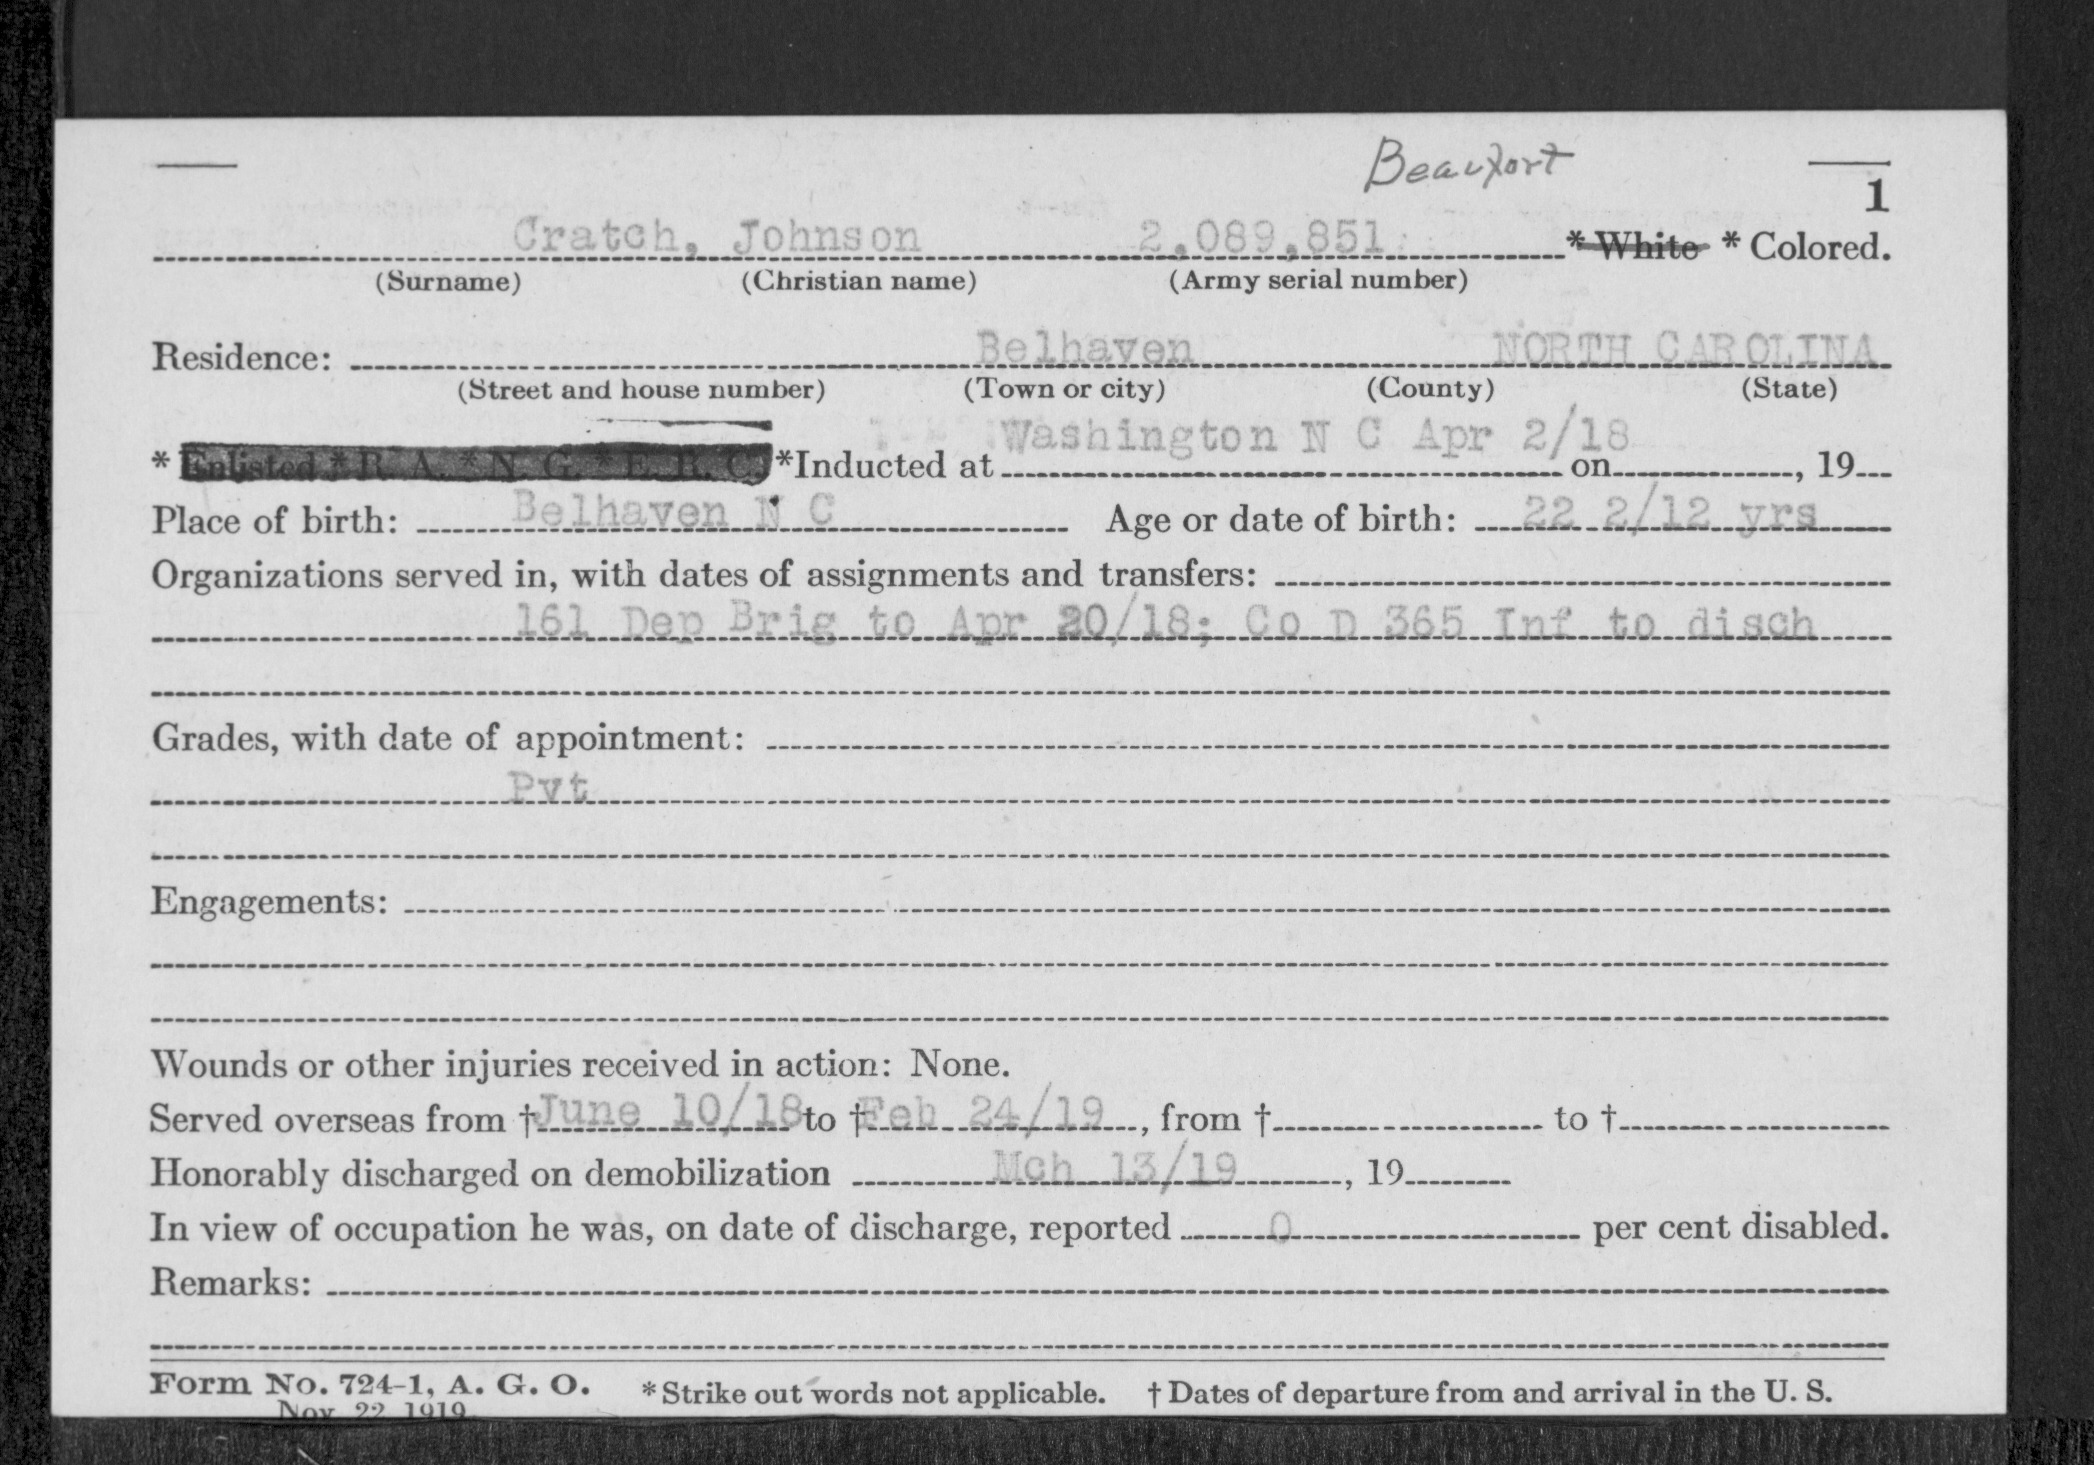 Beaufort
1
Cratch, Johnson 2,089,851 * White * Colored.
(Surname) (Christian name) (Army serial number)
Residence: Belhaven NORTH CAROLINA
(Street and house number) (Town or city) (County) (State)
* Enlisted * R. A. * N. G. * E. R. C. *Inducted at Washington N C Apr 2/18 on , 19
Place of birth: Belhaven N C Age or date of birth: 22 2/12 yrs
Organizations served in, with dates of assignments and transfers:
161 Dep Brig to Apr 20/18; Co D 365 Inf to disch
Grades, with date of appointment:
Pvt
Engagements:
Wounds or other injuries received in action: None.
Served overseas from † June 10/18 to † Feb 24/19, from † to †
Honorably discharged on demobilization Mch 13/19, 19
In view of occupation he was, on date of discharge, reported 0 per cent disabled.
Remarks:
Form No. 724-1, A. G. O. * Strike out words not applicable. † Dates of departure from and arrival in the U. S.
Nov. 22, 1919